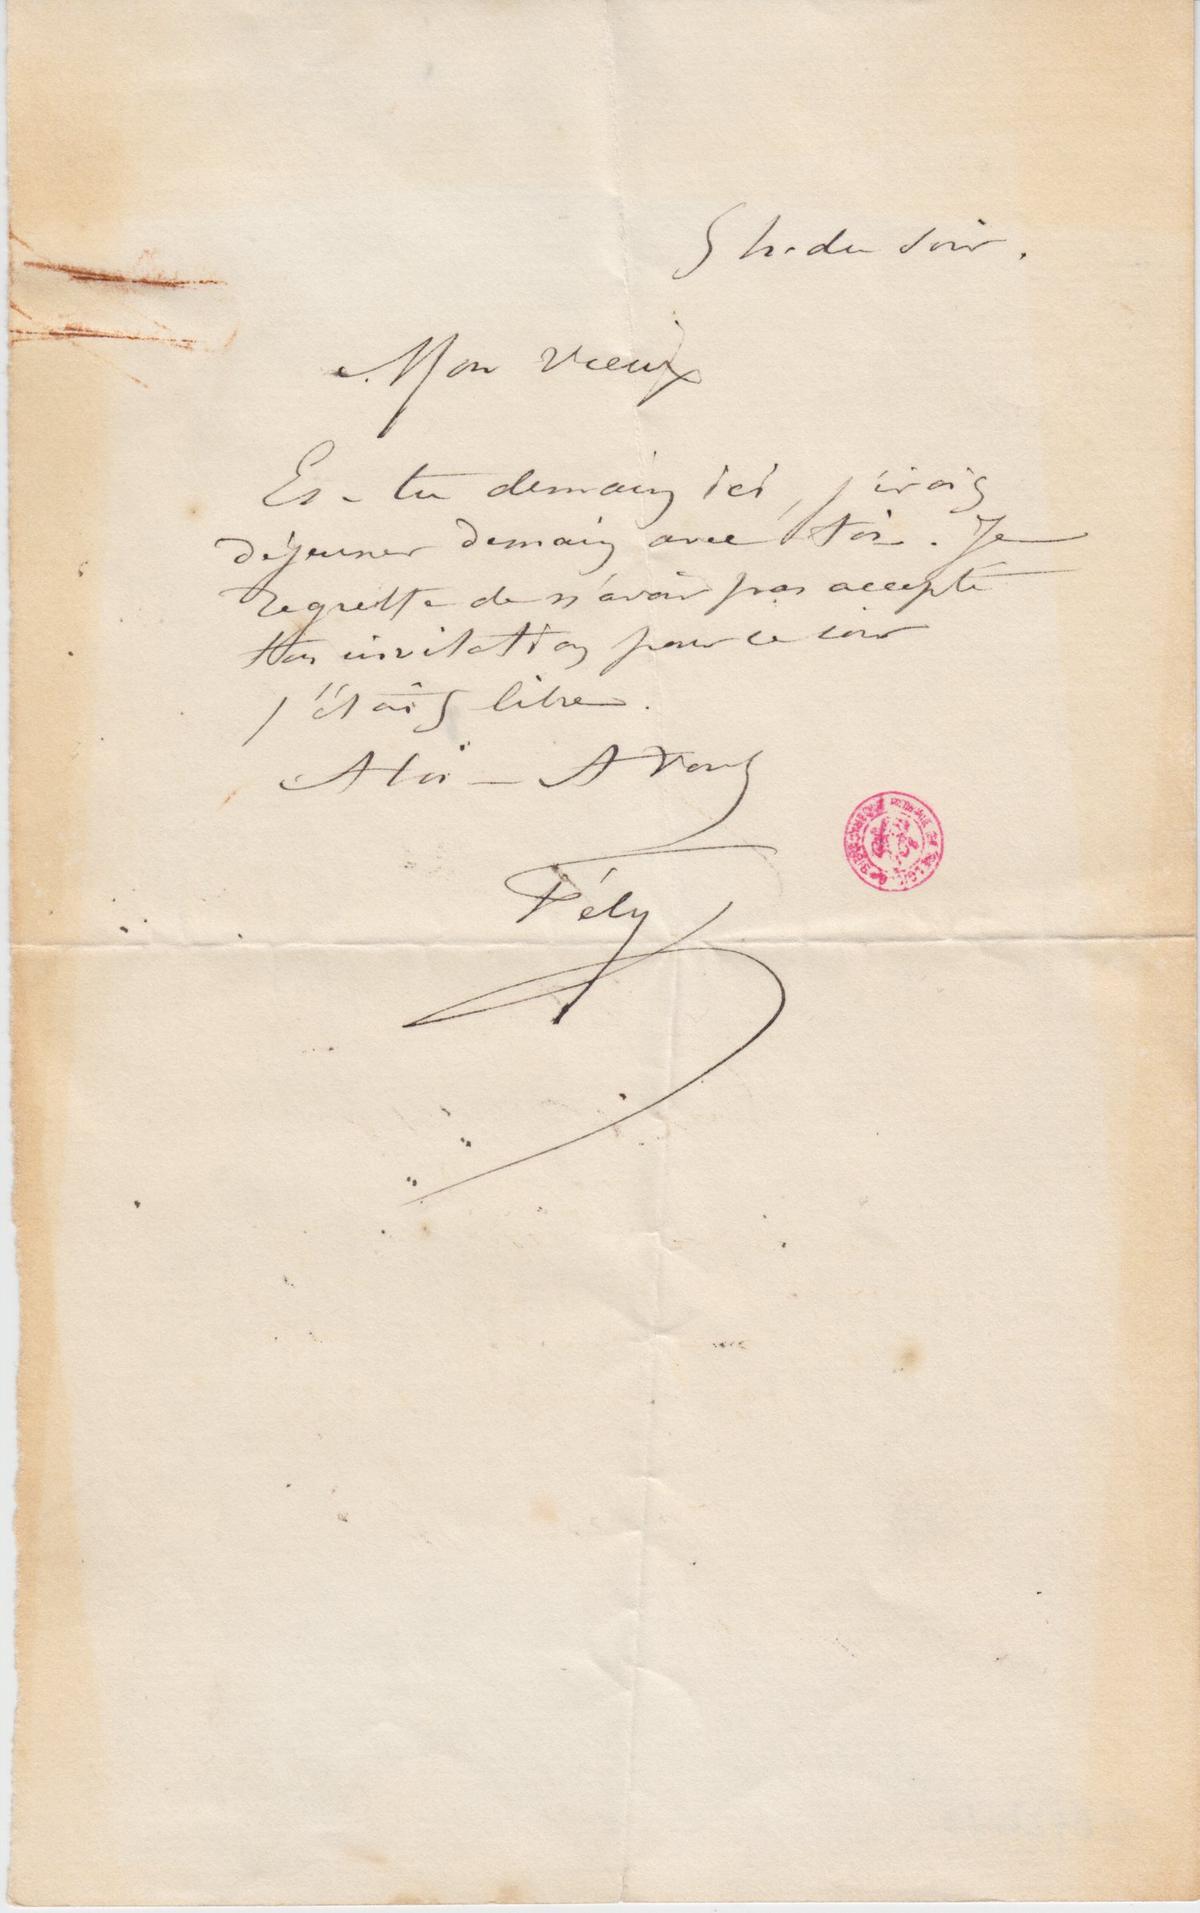 5 h. du soir.
Mon vieux
Es-tu demain ici, j'irais
déjeuner demain avec toi. Je
regrette de n'avoir pas accepté
ton invitation pour ce soir
j'étais libre.
A toi — A vous
Fély